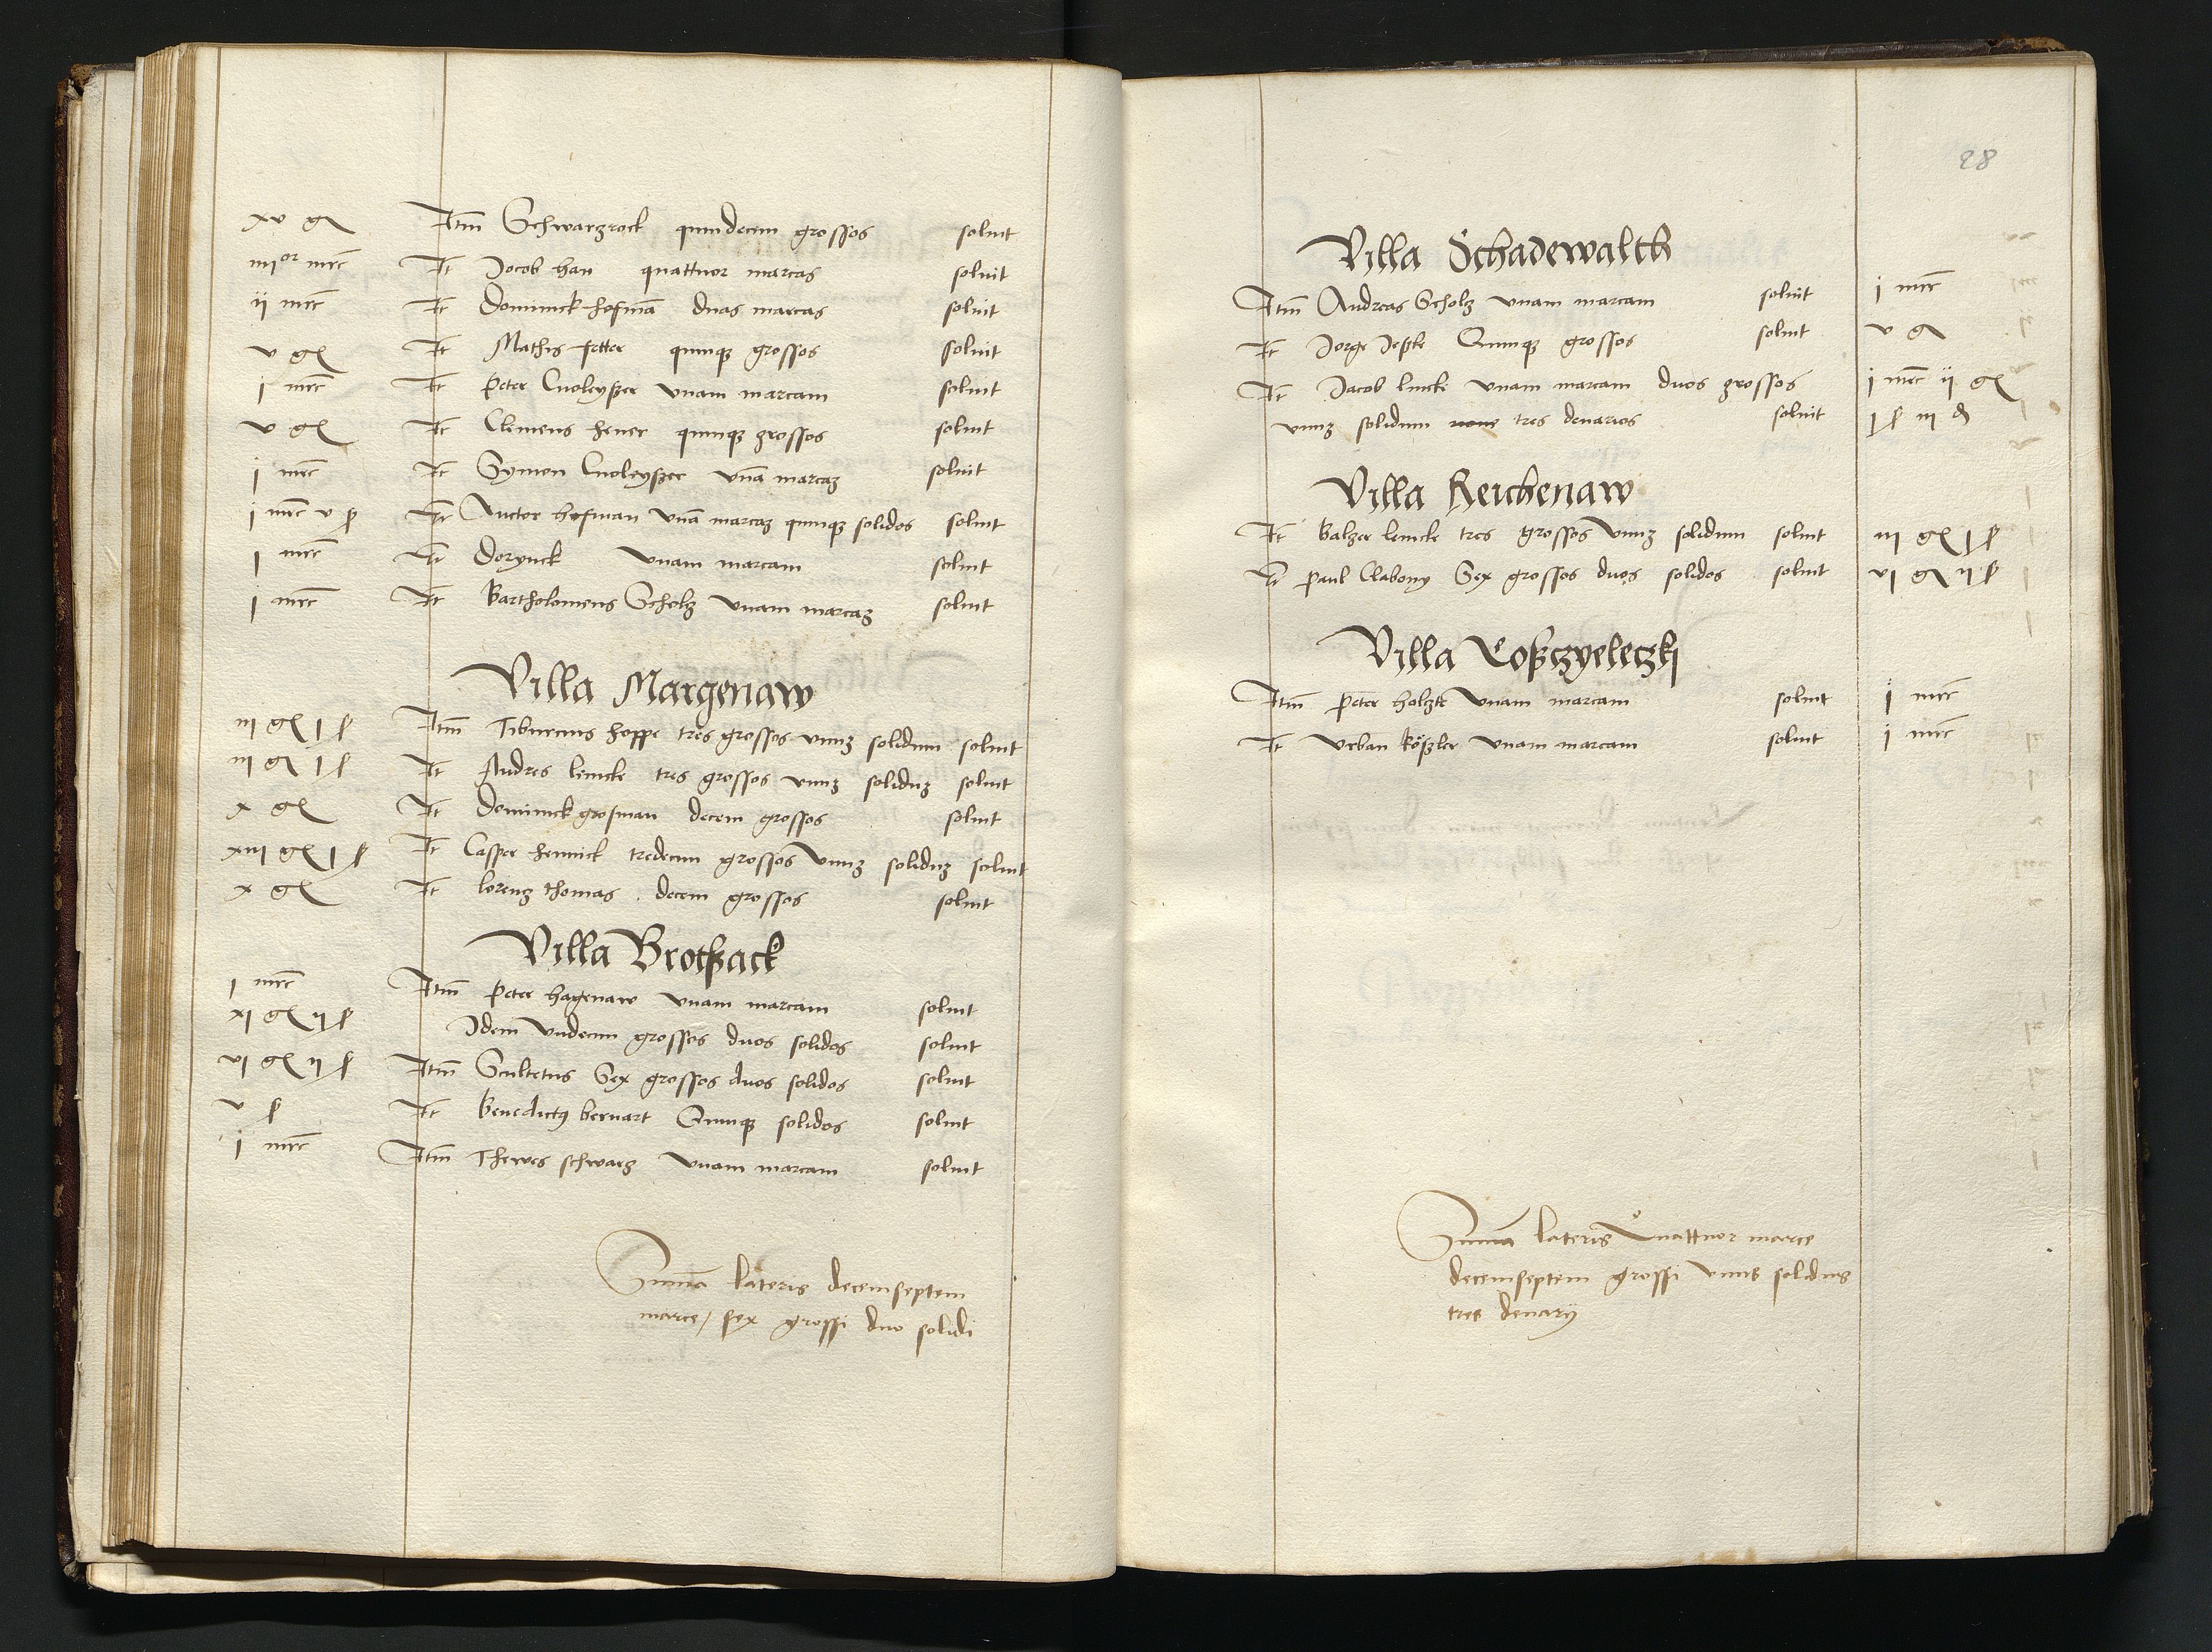 xv gr Itm Schwarzrock quindecim grossos soluit
iiiior mrc It Jocob han quattuor marcas soluit
ij mrc It Dominick hofmā duas marcas soluit
v gr It Mathis fetter quinqz grossos soluit
i mrc It Peter Cuoleyszer vnam marcam soluit
v gr It Clemens hener quinqz grossos soluit
j mrc It Symon Cuoleyszer vnā marcaz soluit
j mrc v ſ It Auctor hofman vnā marcaz quinqz solidos soluit
j mrc It Dorynck vnam marcam soluit
j mrc It Bartholomeus Scholz vnam marcaz soluit
Villa Margenaw
iij gr j ſ Itm Tiburcius hoppe tres grossos vnuz solidum soluit
iij gr j ſ It Andres lemcke tres grossos vnuz soliduz soluit
x gr It Dominick grosman decem grossos soluit
xiij gr j ſ It Casper hennick tredecim grossos vnuz soliduz soluit
x gr It lorenz thomas decem grossos soluit
Villa Brotsack
j mrc Itm Peter hagenaw vnam marcam soluit
xj gr ij ſ Idem vndecim grossos duos solidos soluit
vj gr ij ſ Itm Scultetus Sex grossos duos solidos soluit
v ſ It Benedictus bernart Quinqz solidos soluit
j mrc Itm Thewes schwarz vnam marcam soluit
Summa lateris decemseptem
marce / sex grossi duo solidi
28
Villa Schadewalth
Itm Andreas Scholz vnam marcam soluit j mrc
It Jorge Jeszke Quinqz grossos soluit v gr
It Jacob lincke vnam marcam duos grossos j mrc ij gr
vnuz solidum tres denarios soluit j ſ iij d
Villa Reichenaw
It Balzer lemcke tres grossos vnuz solidum soluit iij gr j ſ
It Paul Clabony Sex grossos duos solidos soluit vj gr ij ſ
Villa Coszczyeleczkj
Itm Peter holzte vnam marcam soluit j mrc
It Vrban köszler vnam marcam soluit j mrc
Summa lateris Quattuor marce
decemseptem grossi vnus solidus
tres denarij